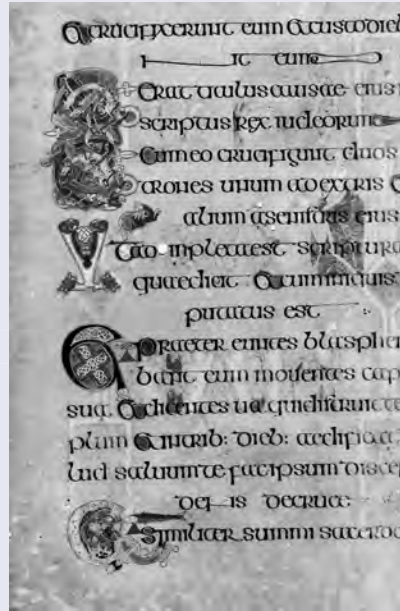 Et crucifixerunt eum et custodieb
nt eum
Et erat titulus causae eius
scriptus rex iudeorum
Et cum eo crucifigunt duos
trones unum a dextris
alium a sinistris eius
inpleta est scriptura
quae dicit Et cum iniquis
putatus est
Et praetereuntes blasphe
bant eum mouentes cap
sua. Et dicentes ua qui distruit te
plum Et in trib: dieb: aedificat
lud saluum te fac ipsum disce
de cruce
Similiter summi sacerdo